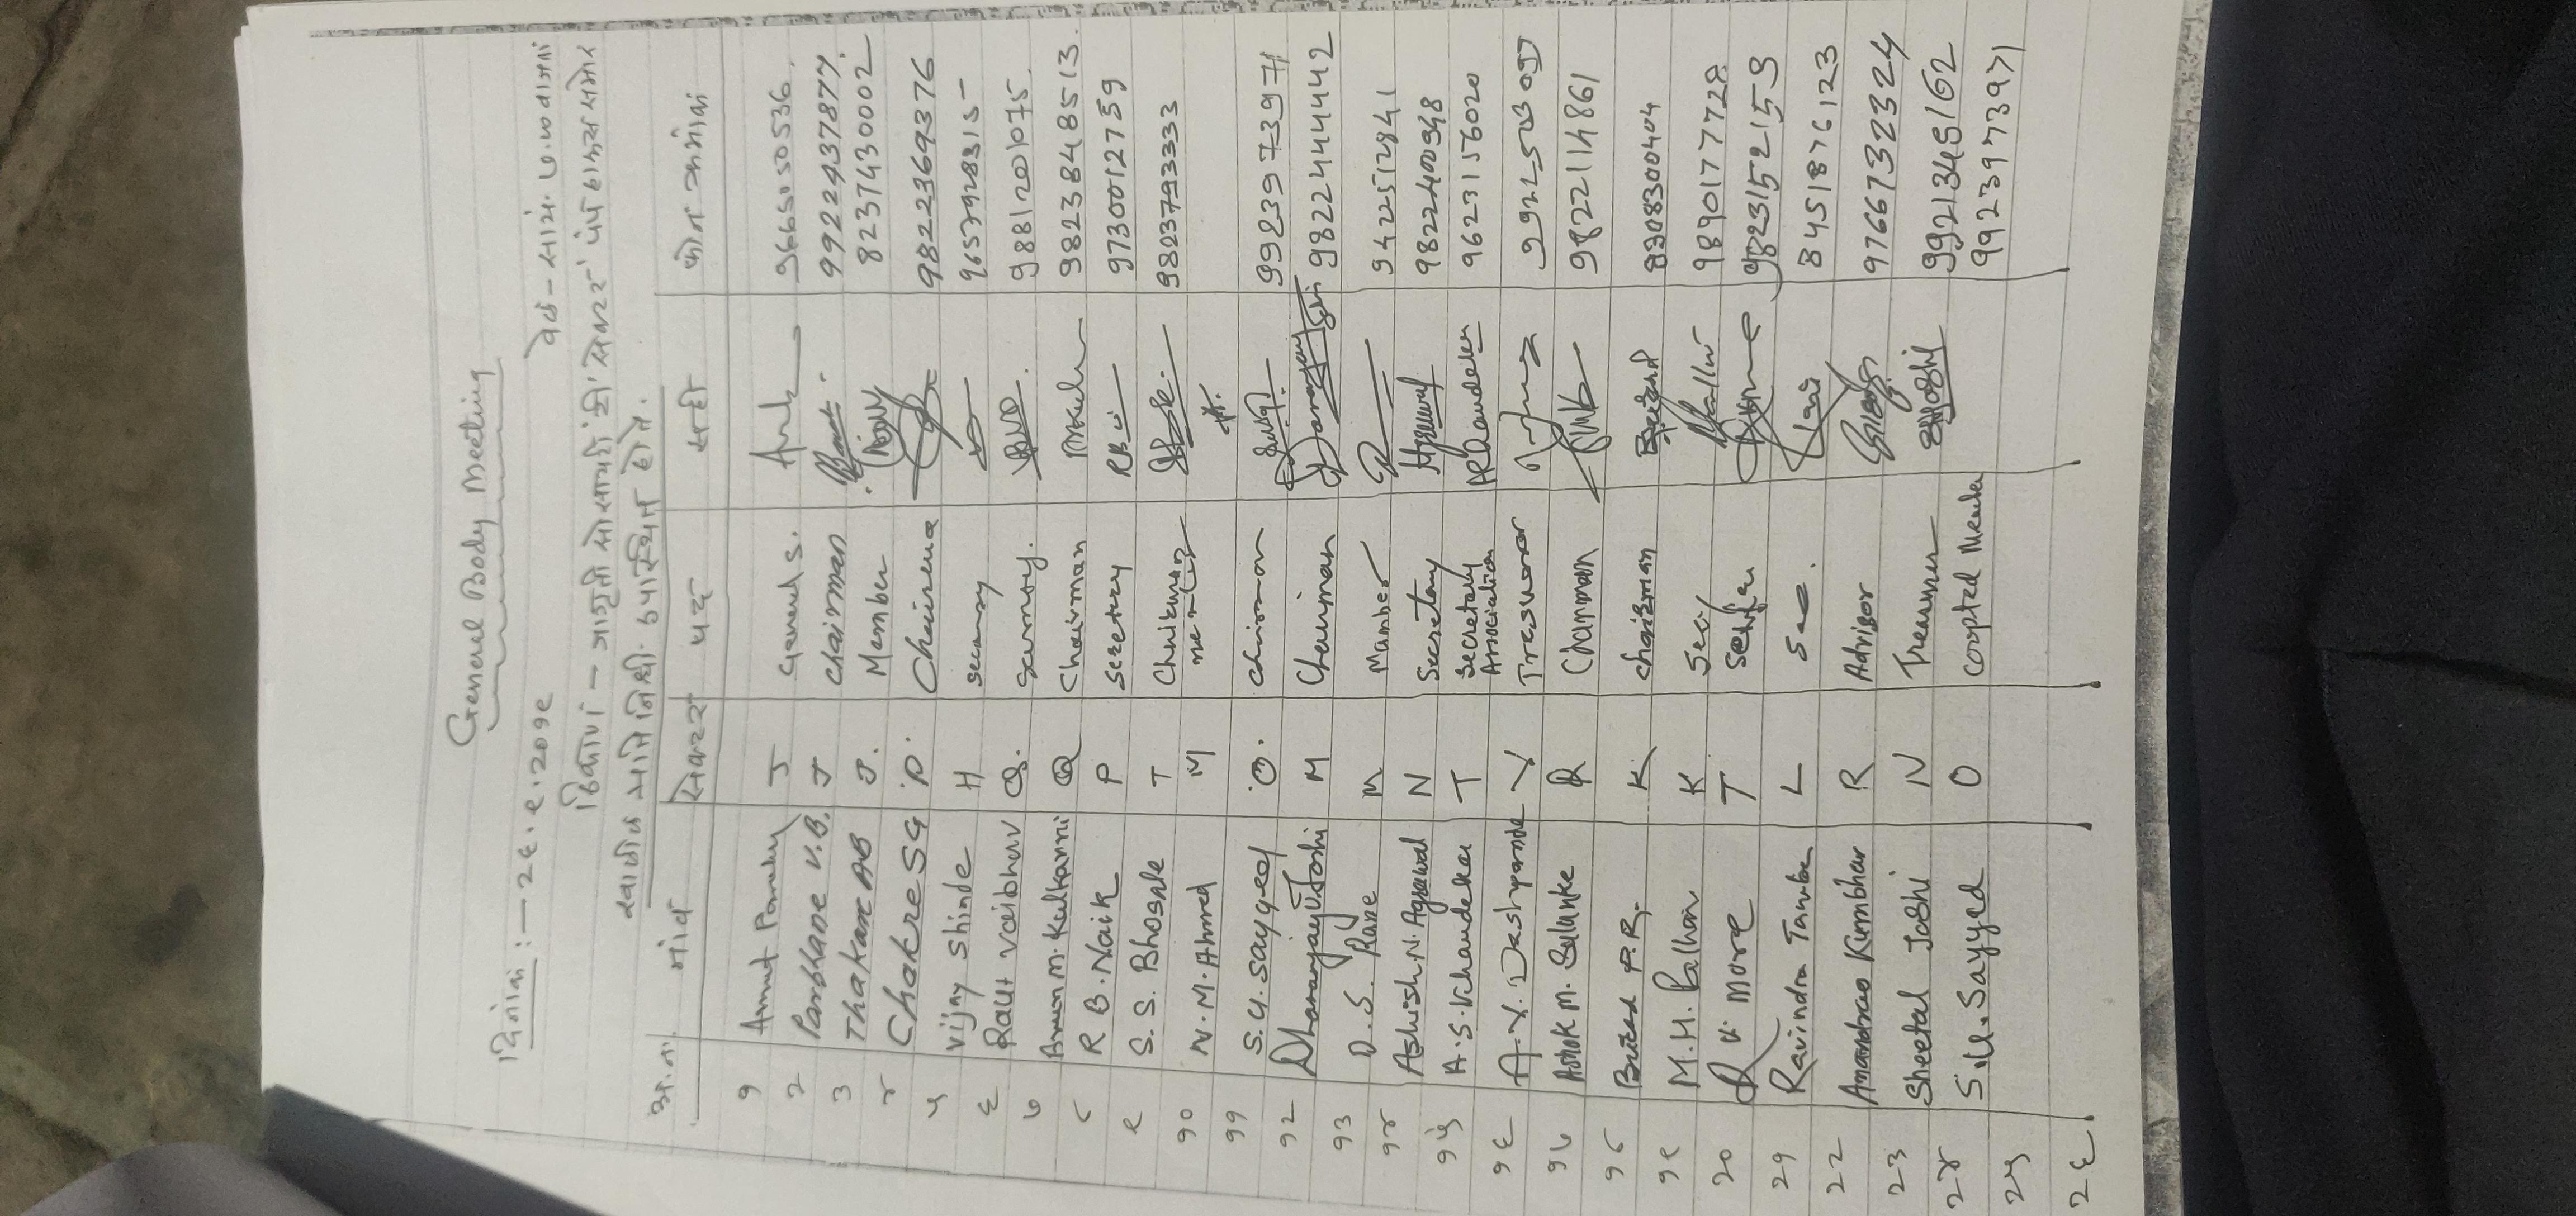 General Body Meeting
दिनांक :- २६.९.२०१९
वेळ - सायं. ७.०० वाजता
ठिकाण - जागृती सोसायटी 'टी' सेक्टर' पंप हाऊस समोर
खालील प्रतिनिधी उपस्थित होते.
अ.न. नांव सेक्टर पद सही फोन क्रमांक
१ Amrut J General S. 9665050536.
२ Parbhane V.B. J chairman 9922437877.
३ Thakare AB J. Member 8237430002
४ Chakre SG P 9822369376
५ Vijay Shinde H 9657928315
६ Raut Vaibhav Q. 9881201075.
७ Arun M. Kulkarni Q Chairman 9823848513.
८ R B. Naik P Secretery RB 9730012759
९ S. S. Bhosale T 9823793333
१० N. M. Ahmed M
११ S.U. Sayyed O. 9923973971
१२ Dhananjay V Joshi M Chairman 9822444442
१३ D. S. Rane M Mamber 9422512841
१४ Ashish. N. Agrawal N Secretary Agrawal
१५ A. S. Khandekar T Secretary Association Khandekar 9623156020
१६ A. V. Deshpande V
१७ Ashok M. Salunke R Charman 9822114861
१८ P.R. K chairman 8308300404
१९ M. H. Pathan K Secy 9890177728
२० R K More T 9823152153
२१ Ravindra L Sec. 8451876123
२२ Anandrao Kumbhar R Advisor 9766732324
२३ Sheetal Joshi N Treasurer Joshi 9921345162
२४ S.U. Sayyed O coopted Member 9923973971
२५
२६